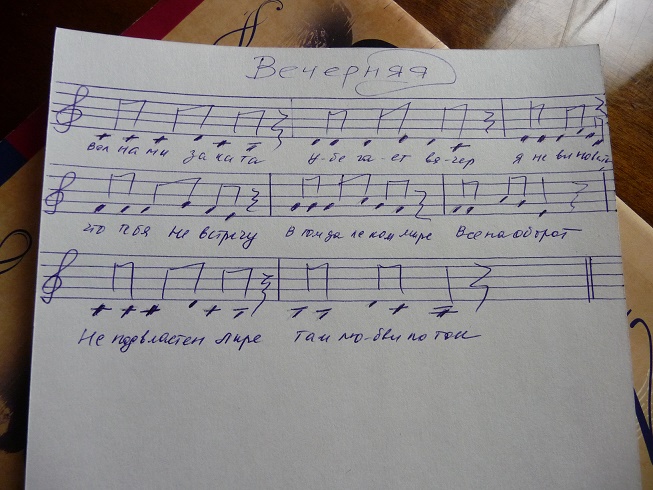 Вечерняя
Вол на ми за ка та у-бе га-ет ве-чер я не ви новат
что тебя не встречу в том да ле ком мире все на оборот
Не подвластен лире там лю-бви по ток